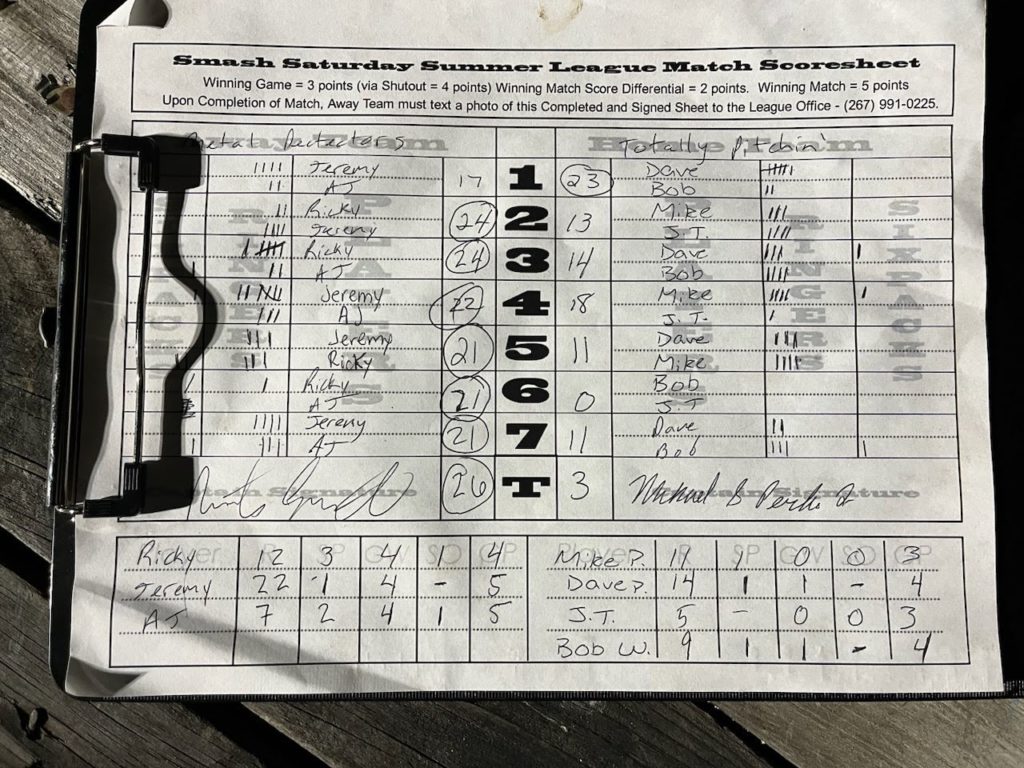 Smash Saturday Summer League Match Scoresheet
Winning Game = 3 points (via Shutout = 4 points) Winning Match Score Differential = 2 points. Winning Match = 5 points
Upon Completion of Match, Away Team must text a photo of this Completed and Signed Sheet to the League Office - (267) 991-0225.
Metal Detectors Totally Pitchin'
Jeremy 17 1 23 Dave
AJ Bob
Ricky 24 2 13 Mike
Jeremy J.T.
Ricky 24 3 14 Dave
AJ Bob
Jeremy 22 4 18 Mike
AJ J.T.
Jeremy 21 5 11 Dave
Ricky Mike
Ricky 21 6 0 Bob
AJ J.T
Jeremy 21 7 11 Dave
AJ Bob
26 T 3
Captain Signature Captain Signature
Player R SP GOV SO GP Player R SP GOV SO GP
Ricky 12 3 4 1 4 Mike P. 11 1 0 0 3
Jeremy 22 1 4 - 5 Dave P. 14 1 1 - 4
AJ 7 2 4 1 5 J.T. 5 - 0 0 3
Bob W. 9 1 1 - 4